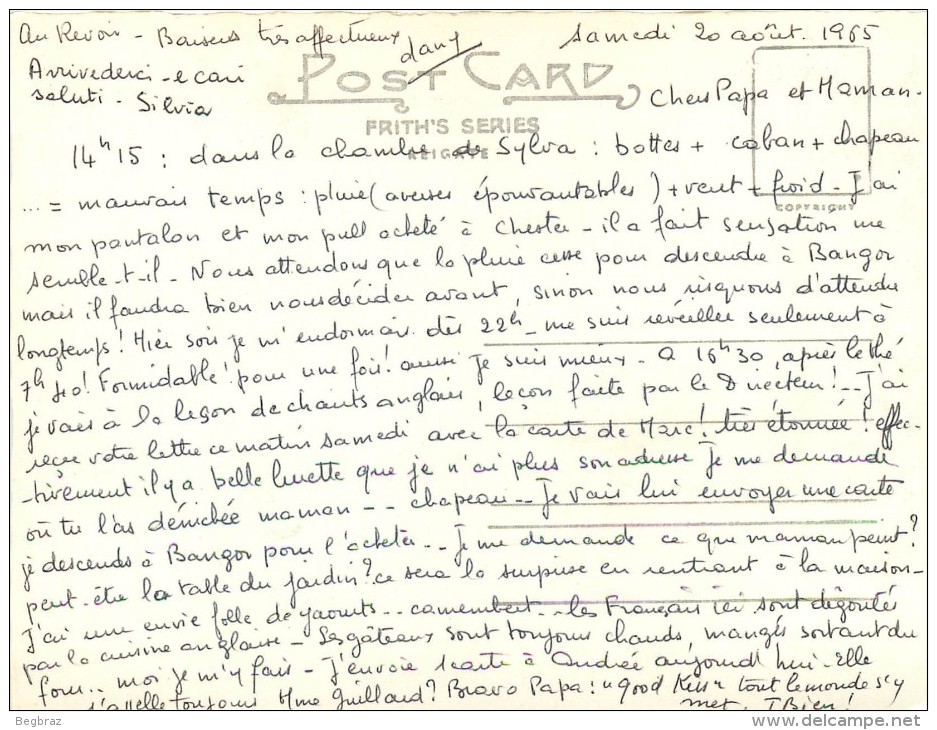 Au Revoir - Baisers très affectueux
dany
Arrivederci - e cari
saluti - Silvia
Samedi 20 août. 1965
POST CARD
FRITH'S SERIES
REIGATE
COPYRIGHT
Chers Papa et Maman -
14h15 : dans la chambre de Sylva : bottes + caban + chapeau
... = mauvais temps : pluie (averses épouvantables) + vent + froid - J'ai
mon pantalon et mon pull acheté à Chester - il a fait sensation me
semble-t-il - Nous attendons que la pluie cesse pour descendre à Bangor
mais il faudra bien nous décider avant, sinon nous risquons d'attendre
longtemps ! Hier soir je m'endormais dès 22h - me suis réveillée seulement à
7h40 ! Formidable ! pour une fois ! aussi je suis mieux - A 16h30, après le thé
je vais à la leçon de chants anglais, leçon faite par le Directeur ! -- J'ai
reçue votre lettre ce matin samedi avec la carte de Marc ! très étonnée ! effec-
-tivement il y a belle lurette que je n'ai plus son adresse Je me demande
où tu l'as dénichée maman -- chapeau -- Je vais lui envoyer une carte
je descends à Bangor pour l'acheter -- Je me demande ce que maman peint ?
peut-être la table du jardin ? ce sera la surprise en rentrant à la maison -
J'ai une envie folle de yaourts -- camembert -- les Français ici sont dégoutés
par la cuisine anglaise - Les gâteaux sont toujours chauds, mangés sortant du
four .. moi je m'y fais - J'envoie 1 carte à Andrée aujourd'hui - Elle
s'appelle toujours Mme Guillaud ? Bravo Papa : "good Kiss" tout le monde s'y
met. T Bien !
Begbraz